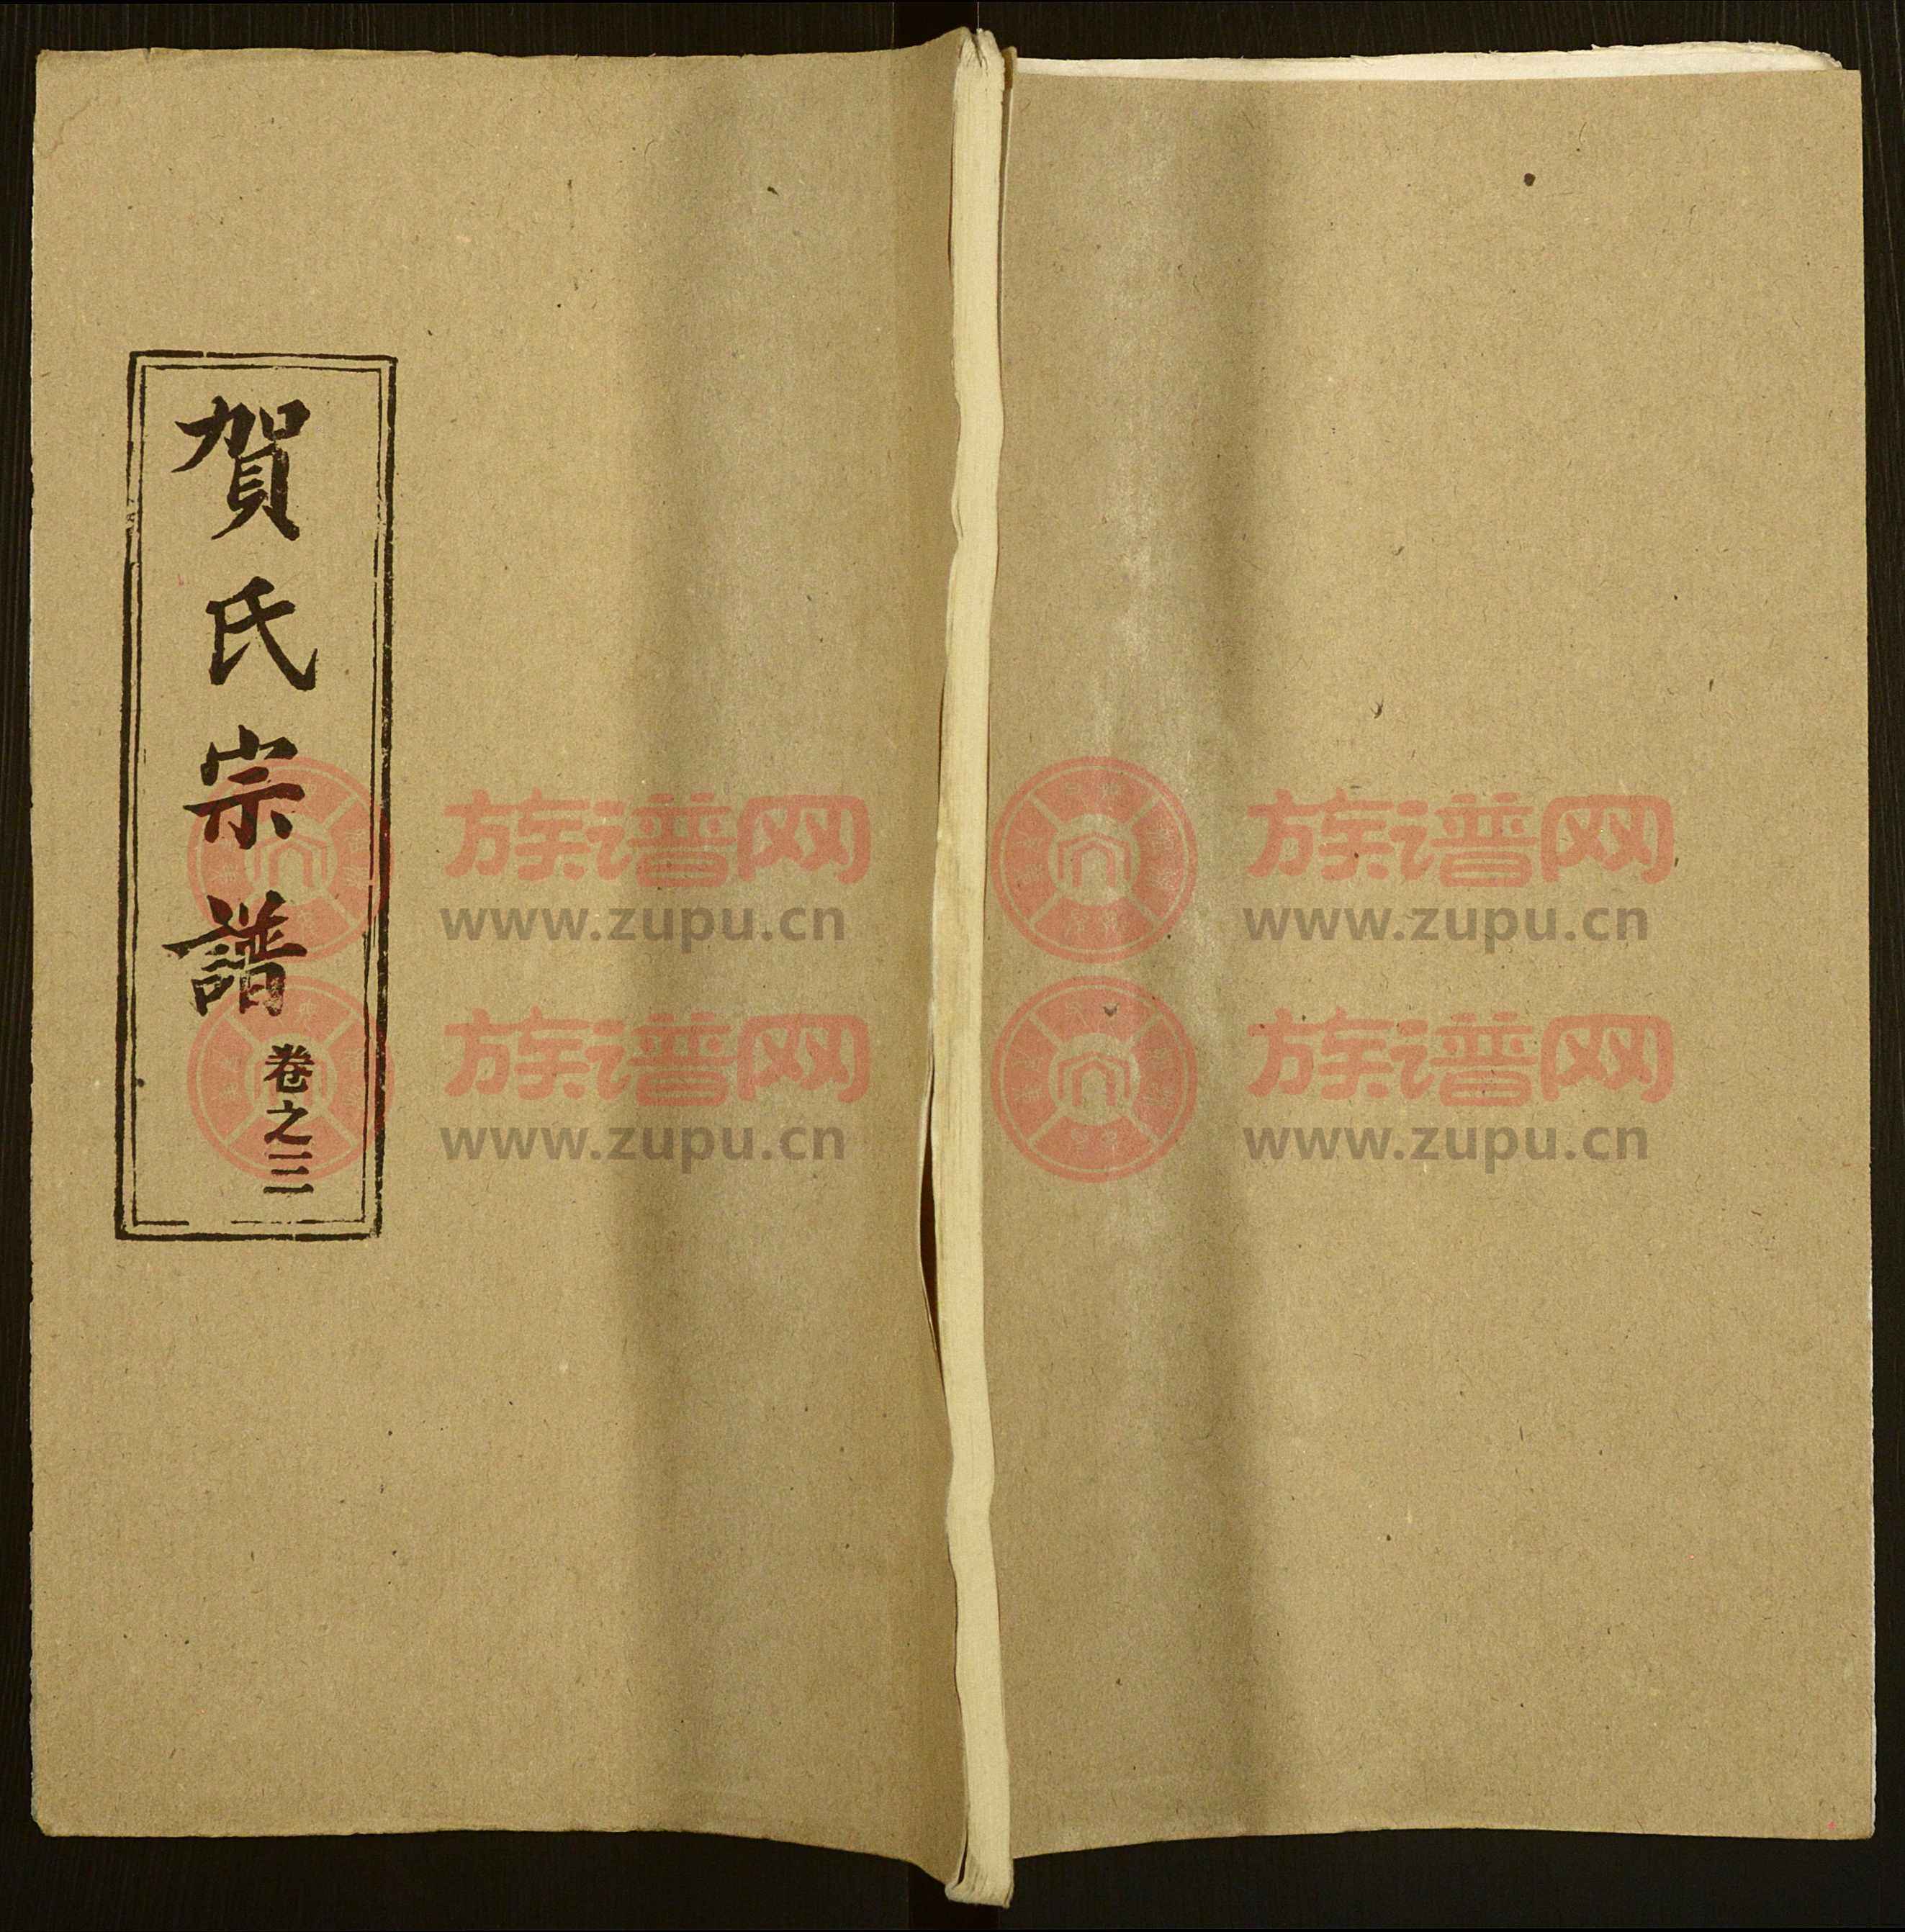 賀氏宗譜
卷之三
族谱网
www.zupu.cn
族谱网
www.zupu.cn
族谱网
www.zupu.cn
族谱网
www.zupu.cn